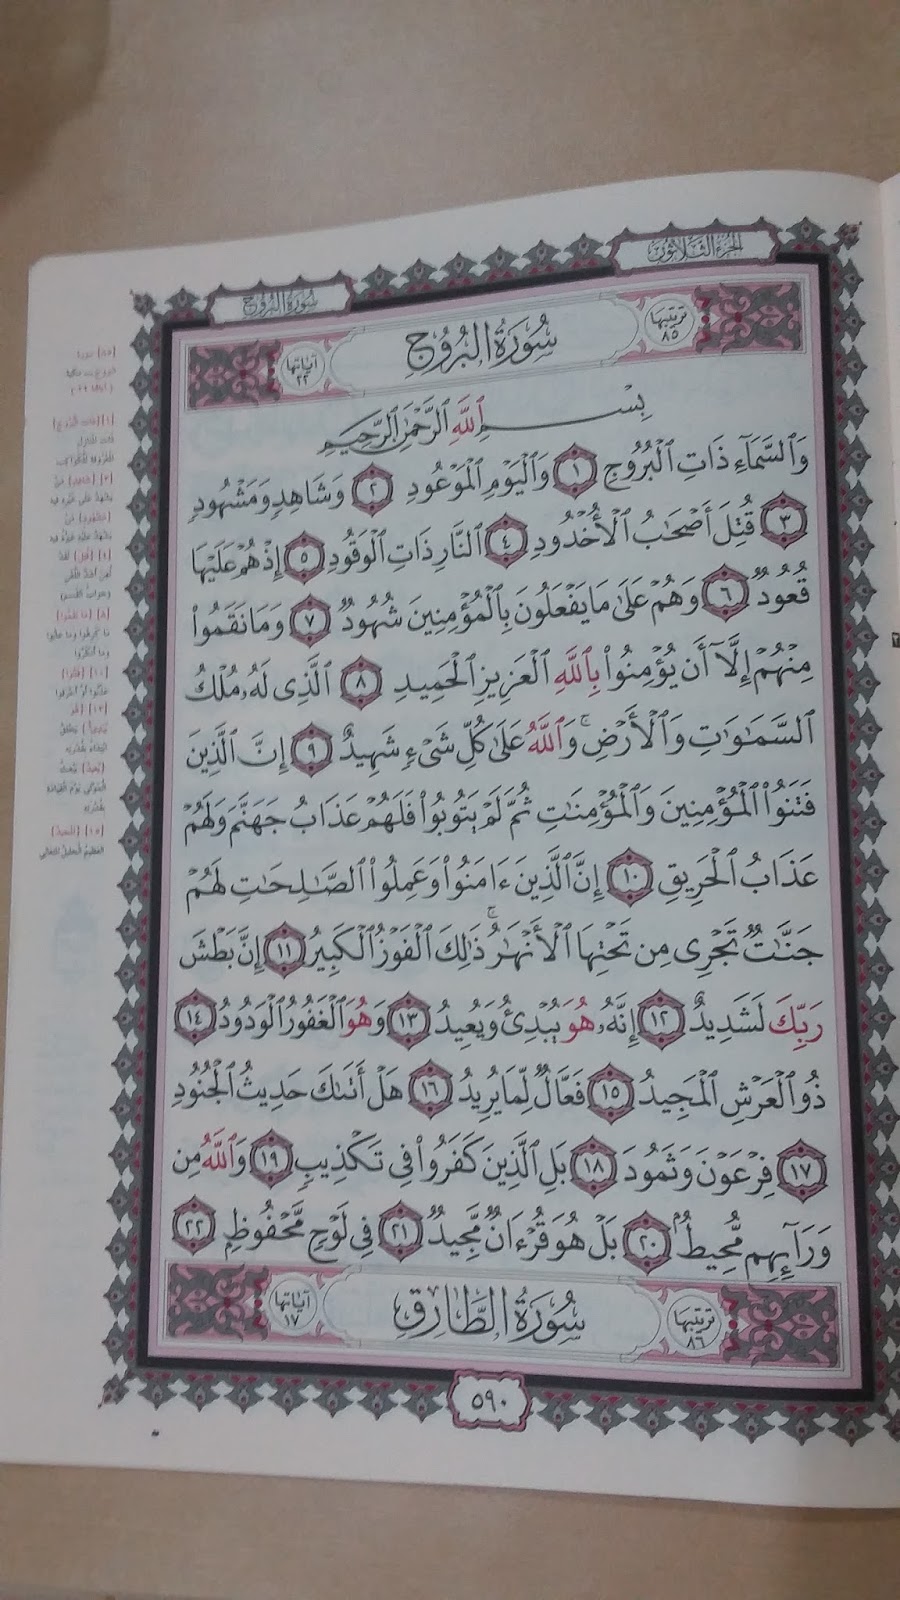 الجزء الثلاثون
سورة البروج
ترتيبها ٨٥
سُورَةُ البُرُوجِ
آياتها ٢٢
بِسْمِ ٱللَّهِ ٱلرَّحْمَٰنِ ٱلرَّحِيمِ
وَٱلسَّمَآءِ ذَاتِ ٱلْبُرُوجِ ١ وَٱلْيَوْمِ ٱلْمَوْعُودِ ٢ وَشَاهِدٍ وَمَشْهُودٍ
٣ قُتِلَ أَصْحَٰبُ ٱلْأُخْدُودِ ٤ ٱلنَّارِ ذَاتِ ٱلْوَقُودِ ٥ إِذْ هُمْ عَلَيْهَا
قُعُودٌ ٦ وَهُمْ عَلَىٰ مَا يَفْعَلُونَ بِٱلْمُؤْمِنِينَ شُهُودٌ ٧ وَمَا نَقَمُوا۟
مِنْهُمْ إِلَّآ أَن يُؤْمِنُوا۟ بِٱللَّهِ ٱلْعَزِيزِ ٱلْحَمِيدِ ٨ ٱلَّذِى لَهُۥ مُلْكُ
ٱلسَّمَٰوَٰتِ وَٱلْأَرْضِ ۚ وَٱللَّهُ عَلَىٰ كُلِّ شَىْءٍ شَهِيدٌ ٩ إِنَّ ٱلَّذِينَ
فَتَنُوا۟ ٱلْمُؤْمِنِينَ وَٱلْمُؤْمِنَٰتِ ثُمَّ لَمْ يَتُوبُوا۟ فَلَهُمْ عَذَابُ جَهَنَّمَ وَلَهُمْ
عَذَابُ ٱلْحَرِيقِ ١٠ إِنَّ ٱلَّذِينَ ءَامَنُوا۟ وَعَمِلُوا۟ ٱلصَّٰلِحَٰتِ لَهُمْ
جَنَّٰتٌ تَجْرِى مِن تَحْتِهَا ٱلْأَنْهَٰرُ ۚ ذَٰلِكَ ٱلْفَوْزُ ٱلْكَبِيرُ ١١ إِنَّ بَطْشَ
رَبِّكَ لَشَدِيدٌ ١٢ إِنَّهُۥ هُوَ يُبْدِئُ وَيُعِيدُ ١٣ وَهُوَ ٱلْغَفُورُ ٱلْوَدُودُ ١٤
ذُو ٱلْعَرْشِ ٱلْمَجِيدُ ١٥ فَعَّالٌ لِّمَا يُرِيدُ ١٦ هَلْ أَتَىٰكَ حَدِيثُ ٱلْجُنُودِ
١٧ فِرْعَوْنَ وَثَمُودَ ١٨ بَلِ ٱلَّذِينَ كَفَرُوا۟ فِى تَكْذِيبٍ ١٩ وَٱللَّهُ مِن
وَرَآئِهِم مُّحِيطٌۢ ٢٠ بَلْ هُوَ قُرْءَانٌ مَّجِيدٌ ٢١ فِى لَوْحٍ مَّحْفُوظٍۭ ٢٢
ترتيبها ٨٦
سُورَةُ الطَّارِقِ
آياتها ١٧
٥٩٠